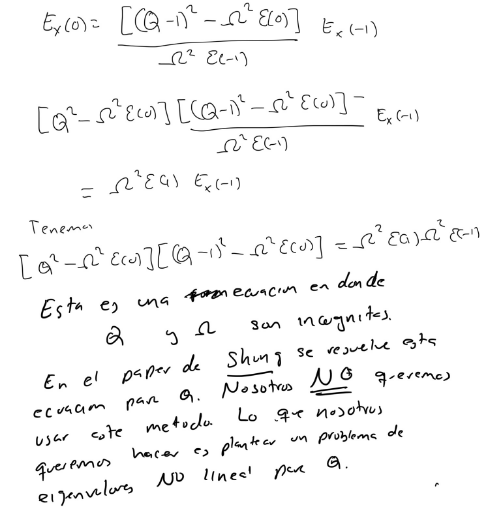 E_x(0) = [(Q-1)² - Ω² ε(0)] / Ω² ε(-1) E_x(-1)
[Q² - Ω² ε(0)] [(Q-1)² - Ω² ε(0)] / Ω² ε(-1) E_x(-1)
= Ω² ε(1) E_x(-1)
Tenemos
[Q² - Ω² ε(0)] [(Q-1)² - Ω² ε(0)] = Ω² ε(1) Ω² ε(-1)
Esta es una ecuacion en donde
Q y Ω son incognitas.
En el paper de Shung se resuelve esta
ecuacion para Q. Nosotros NO queremos
usar este metodo. Lo que nosotros
queremos hacer es plantear un problema de
eigenvalores NO lineal para Q.